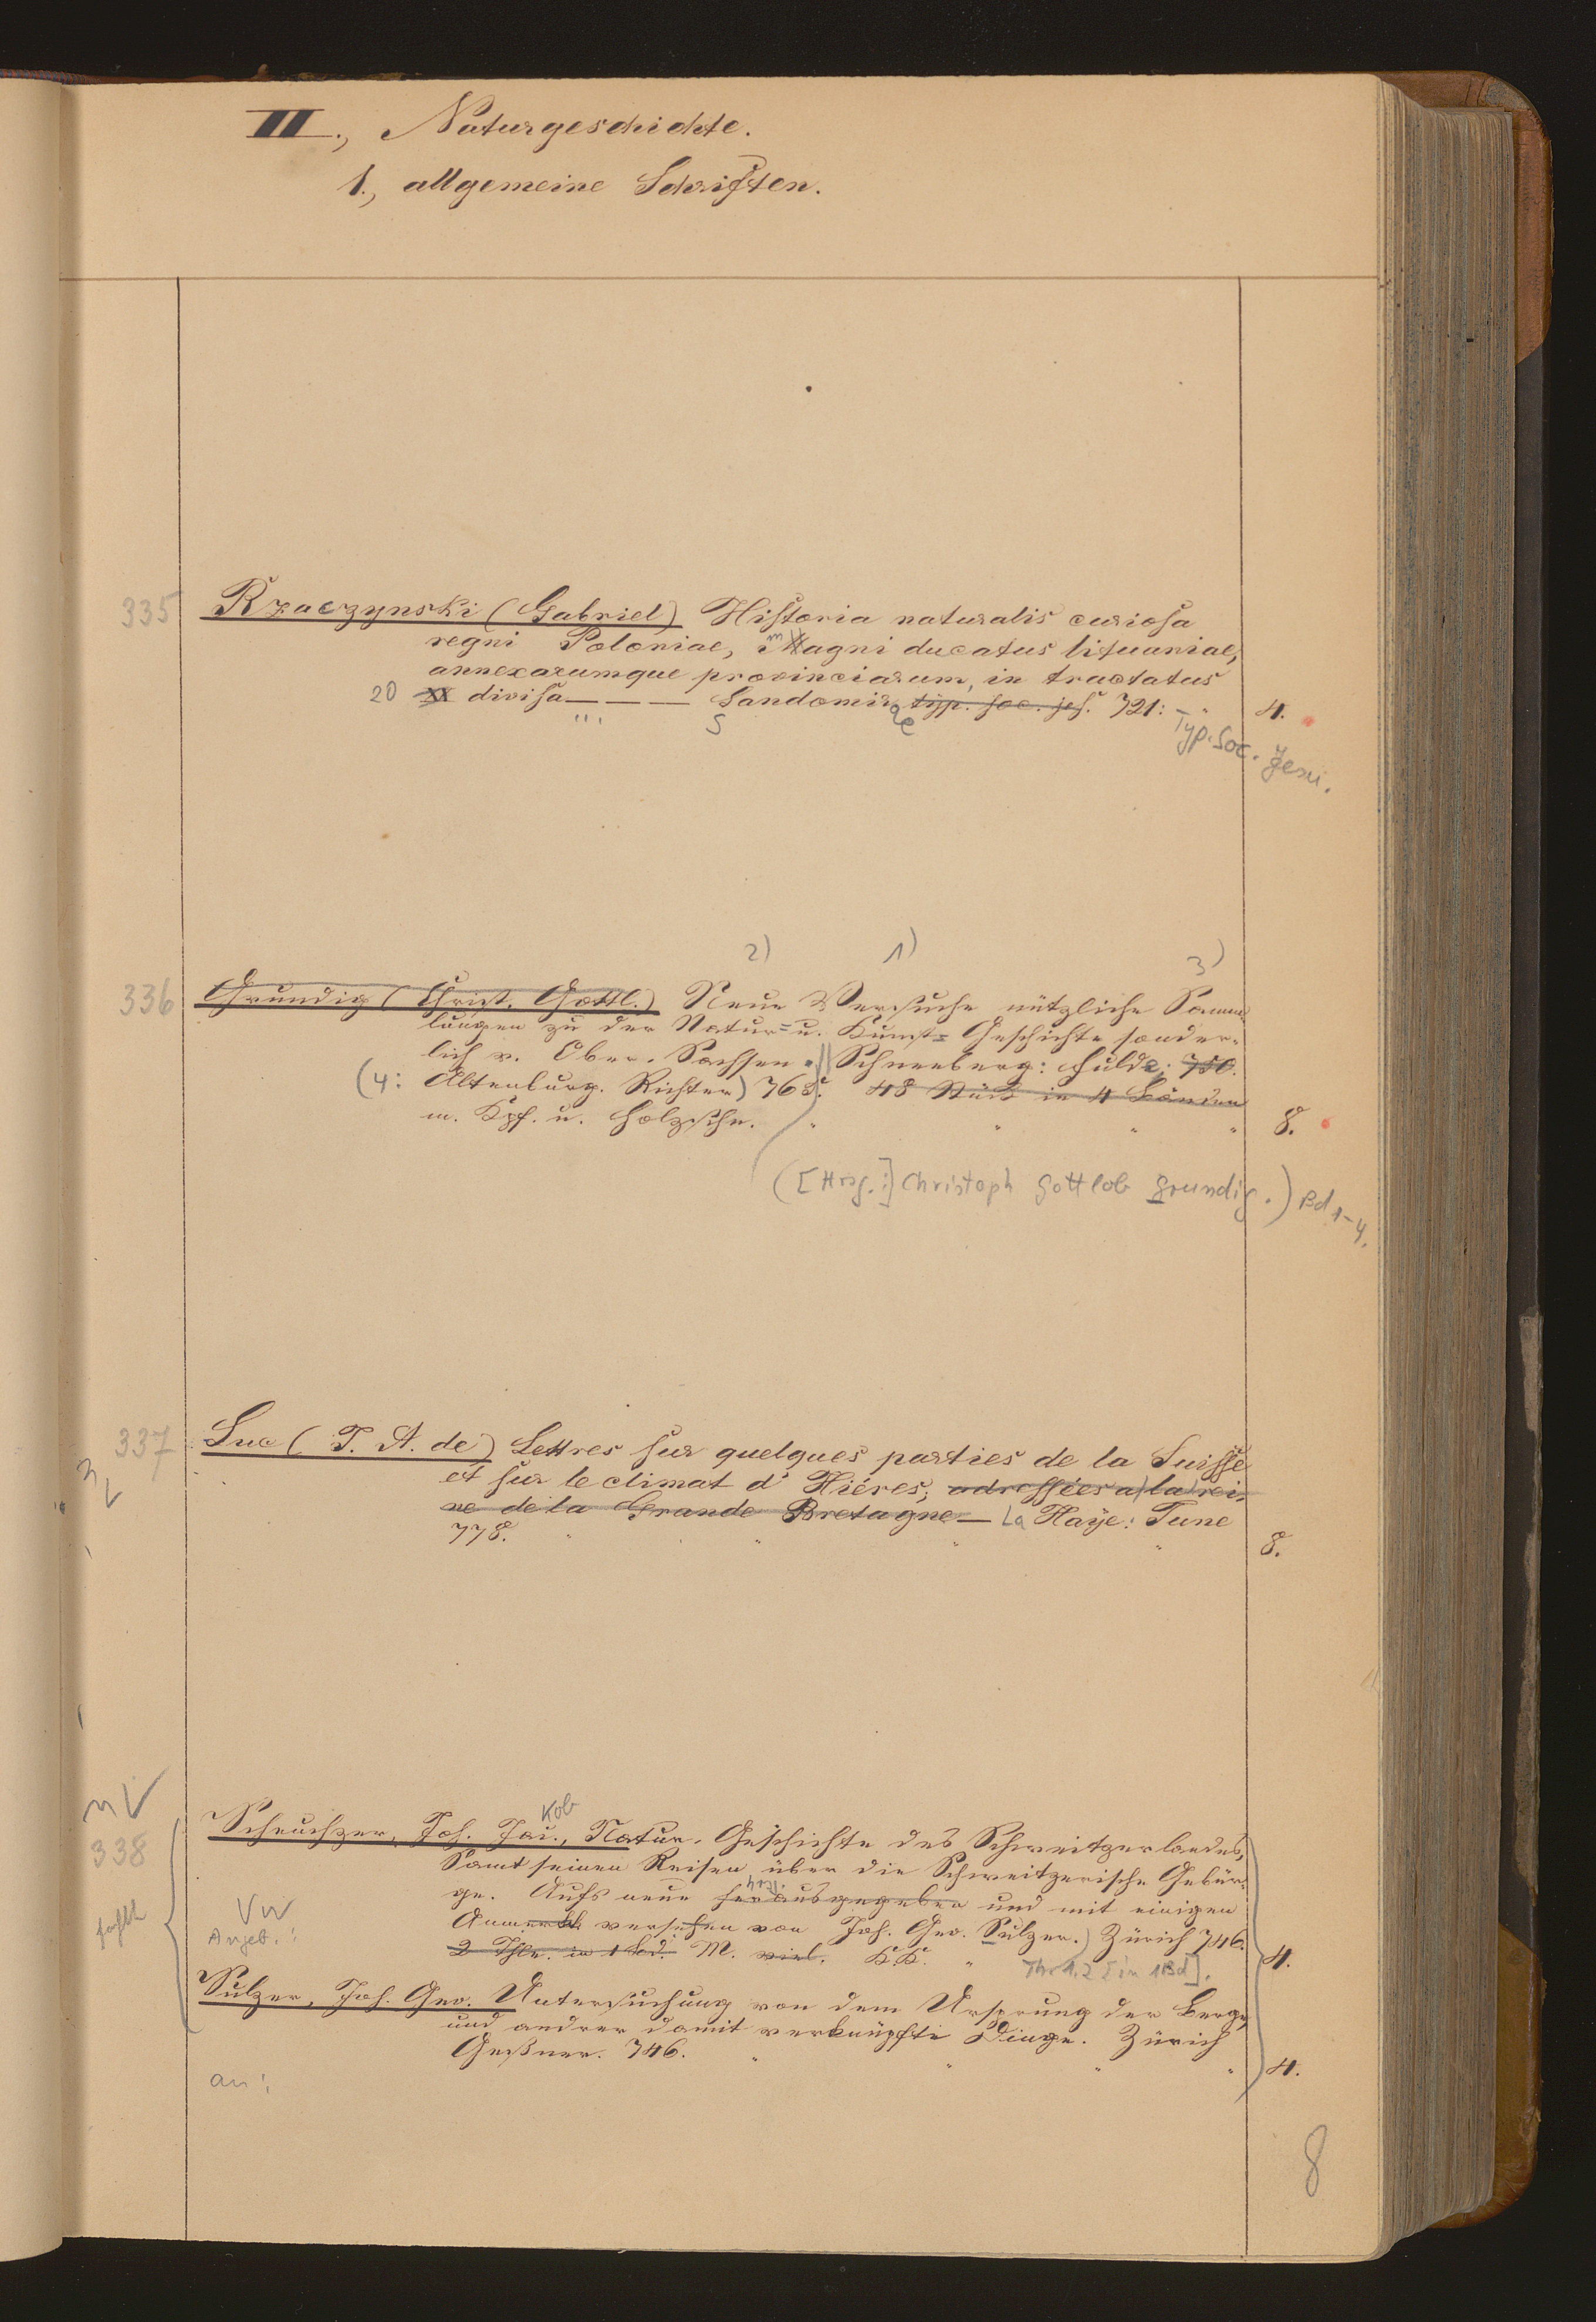 II., Naturgeschichte.
1., allgemeine Schriften.
335 Rzaczynski (Gabriel) Historia naturalis curiosa
regni Poloniae, Magni ducatus lituaniae,
annexarumque provinciarum, in tractatus
20 XX divisa — — — Sandomir typ. soc. jes. 721: 4.
Typ. Soc. Jesu.
2) 1) 3)
336 Grundig (Christ. Gottl.) Neue Versuche nützliche Samm
lungen zu der Natur= u. Kunst= Geschichte sonder-
lich v. Ober-Sachsen. Schneeberg: Fulde; 750.
(4: Altenburg. Richter) 765. 48 Stück in 4 Bänden
m. Kpf. u. Holzschn. 8.
([Hrsg.:] Christoph Gottlob Grundig.) Bd 1-4.
337 Luc (J. A. de) Lettres sur quelques parties de la Suisse
et sur le climat d' Hiéres; adressées a la rei-
ne de la Grande Bretagne — La Haÿe: June
778. 8.
kob
338 Scheuchzer, Joh. Jac., Natur-Geschichte des Schweitzerlandes,
Samt seinen Reisen über die Schweitzerische Gebür-
ge. Aufs neue herausgegeben und mit einigen
Anmerk. versehen von Joh. Geo. Sulzer.) Zürich 746.
2 Thle. in 1 Bd. M. viel. KK. 4.
Thl 1.2 [in 1 Bd].
Sulzer, Joh. Geo. Untersuchung von dem Ursprung der Berge,
und andrer damit verknüpfte Dinge. Zürich
Geßner. 746. 4.
an:
8